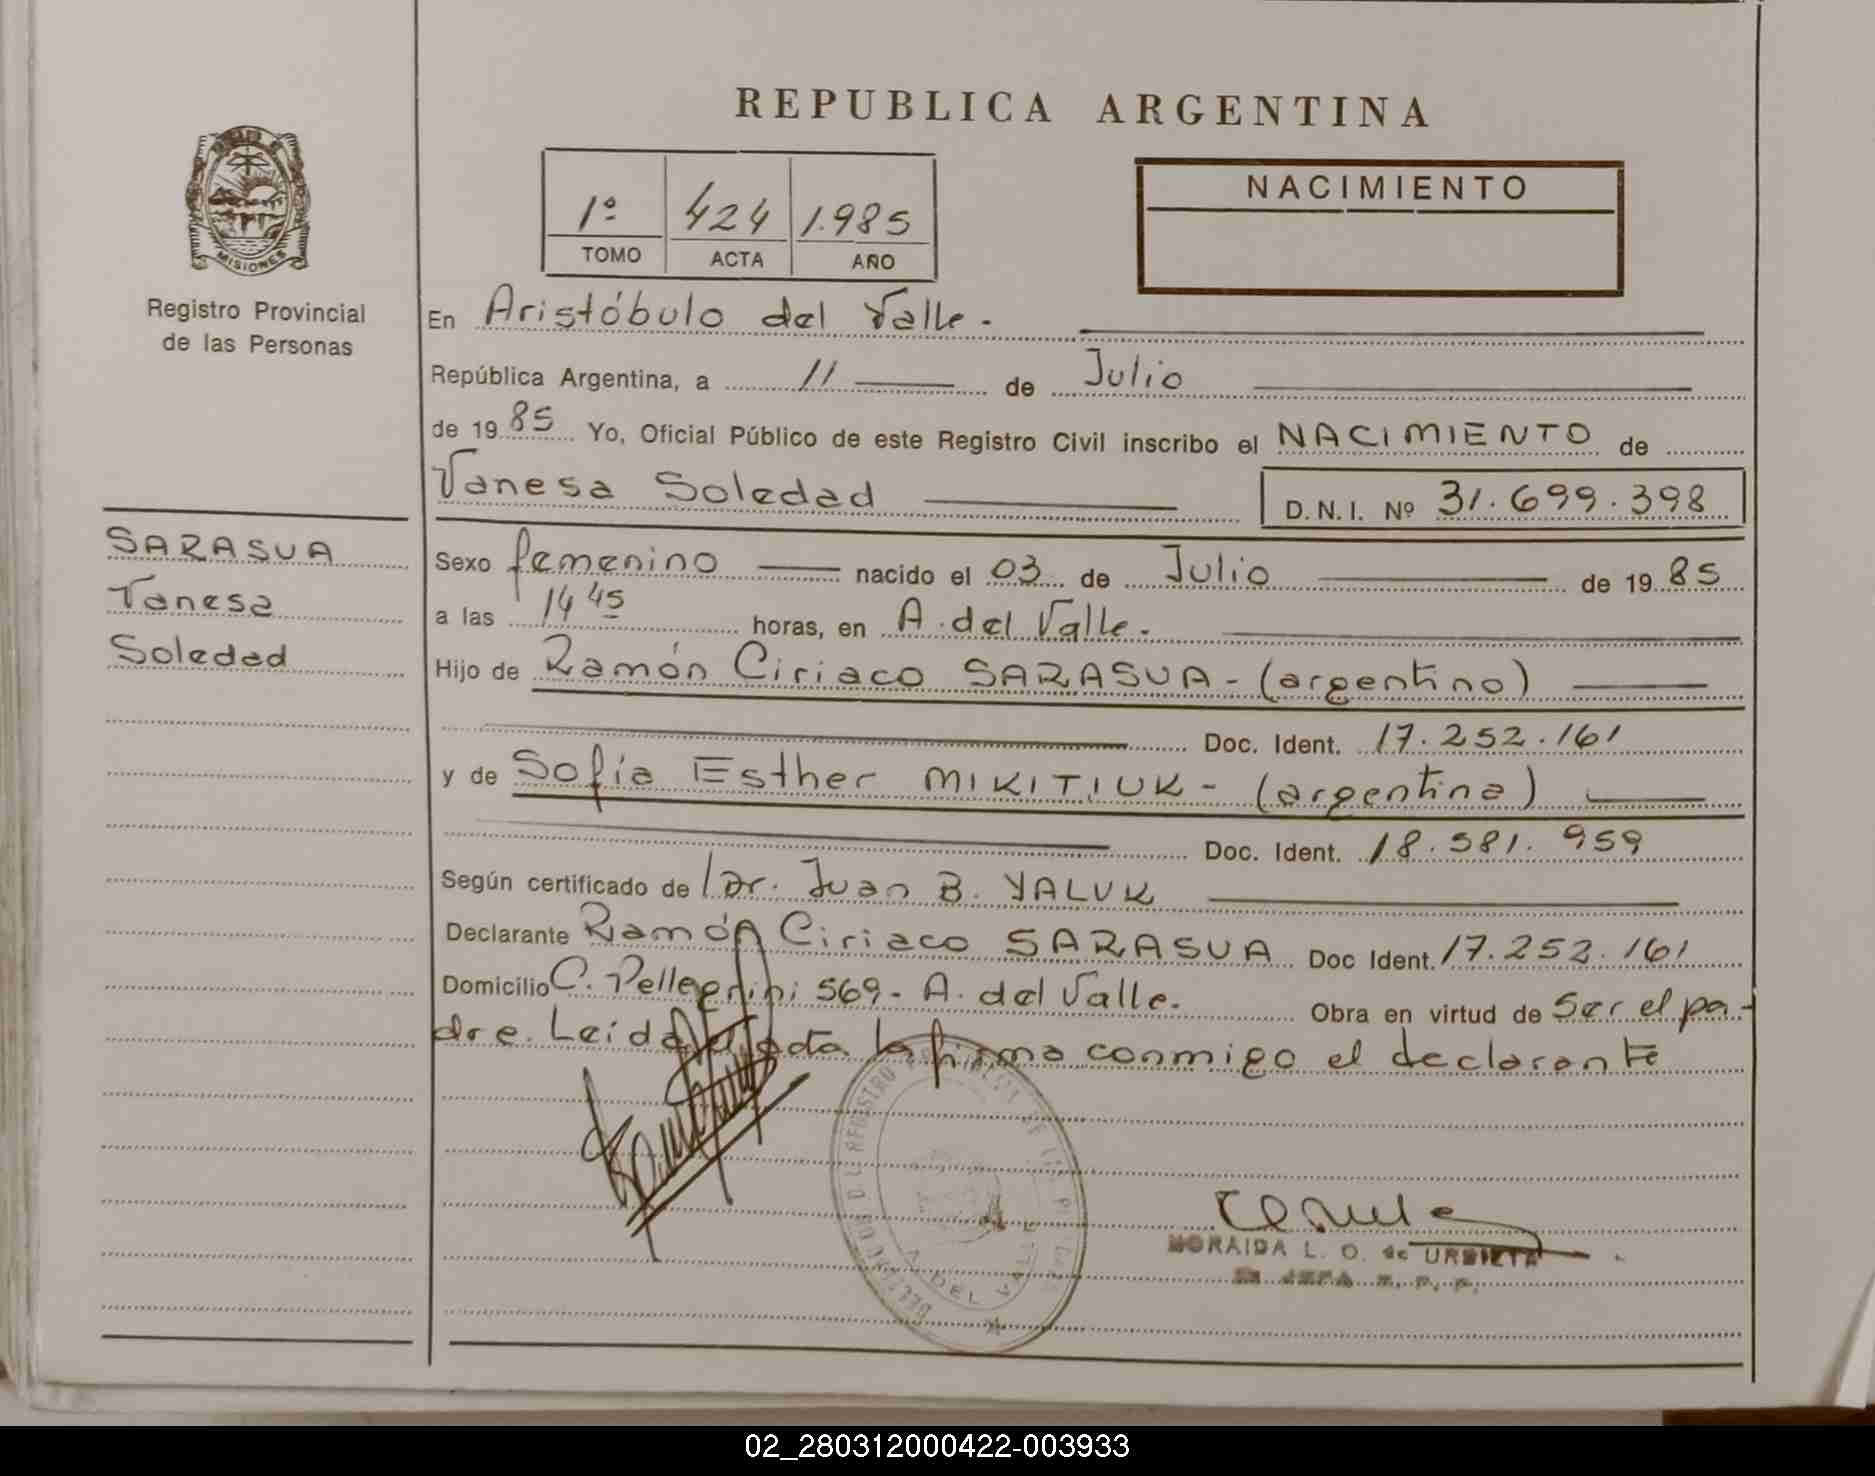 REPUBLICA ARGENTINA
MISIONES
Registro Provincial
de las Personas
1º 424 1.985
TOMO ACTA AÑO
NACIMIENTO
En Aristóbulo del Valle.
República Argentina, a 11 de Julio
de 19 85 Yo, Oficial Público de este Registro Civil inscribo el NACIMIENTO de
Vanesa Soledad D.N.I. Nº 31.699.398
SARASUA
Vanesa
Soledad
Sexo femenino nacido el 03 de Julio de 19 85
a las 14 45 horas, en A. del Valle.
Hijo de Ramón Ciriaco SARASUA - (argentino)
Doc. Ident. 17.252.161
y de Sofia Esther MIKITIUK - (argentina)
Doc. Ident. 18.581.959
Según certificado de Dr. Juan B. YALUK
Declarante Ramón Ciriaco SARASUA Doc Ident. 17.252.161
Domicilio C. Pellegrini 569 - A. del Valle. Obra en virtud de Ser el pa-
dre. Leida el acta la firma conmigo el declarante
A. DEL VALLE
MORAIDA L. O. de URBIETA
JEFA R. P. P.
02_280312000422-003933